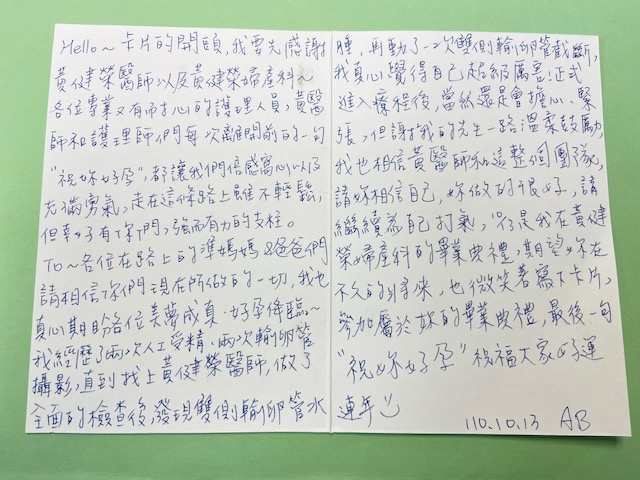 Hello~ 卡片的開頭,我要先感謝
黃健榮醫師以及黃健榮婦產科~
各位專業又有耐心的護理人員,黃醫
師和護理師們每次離開前的一句
"祝妳好孕",都讓我們倍感窩心以及
充滿勇氣,走在這條路上雖不輕鬆,
但幸好有你們,強而有力的支柱。
To~各位在路上的準媽媽&爸爸們
請相信你們現在所做的一切,我也
真心期盼各位美夢成真、好孕降臨~
我經歷了兩次人工受精、兩次輸卵管
攝影,直到找上黃健榮醫師,做了
全面的檢查後,發現雙側輸卵管水
腫,再動了一次雙側輸卵管截斷,
我真心覺得自己超級厲害!正式
進入療程後,當然還是會擔心、緊
張,但謝謝我的先生一路溫柔鼓勵,
我也相信黃醫師和這整個團隊,
請妳相信自己,妳做的很好,請
繼續為自己打氣,今是我在黃健
榮婦產科的畢業典禮,期望妳在
不久的將來,也微笑著寫下卡片,
參加屬於妳的畢業典禮,最後一句
"祝妳好孕" 祝福大家好運
連年
110.10.13 AB